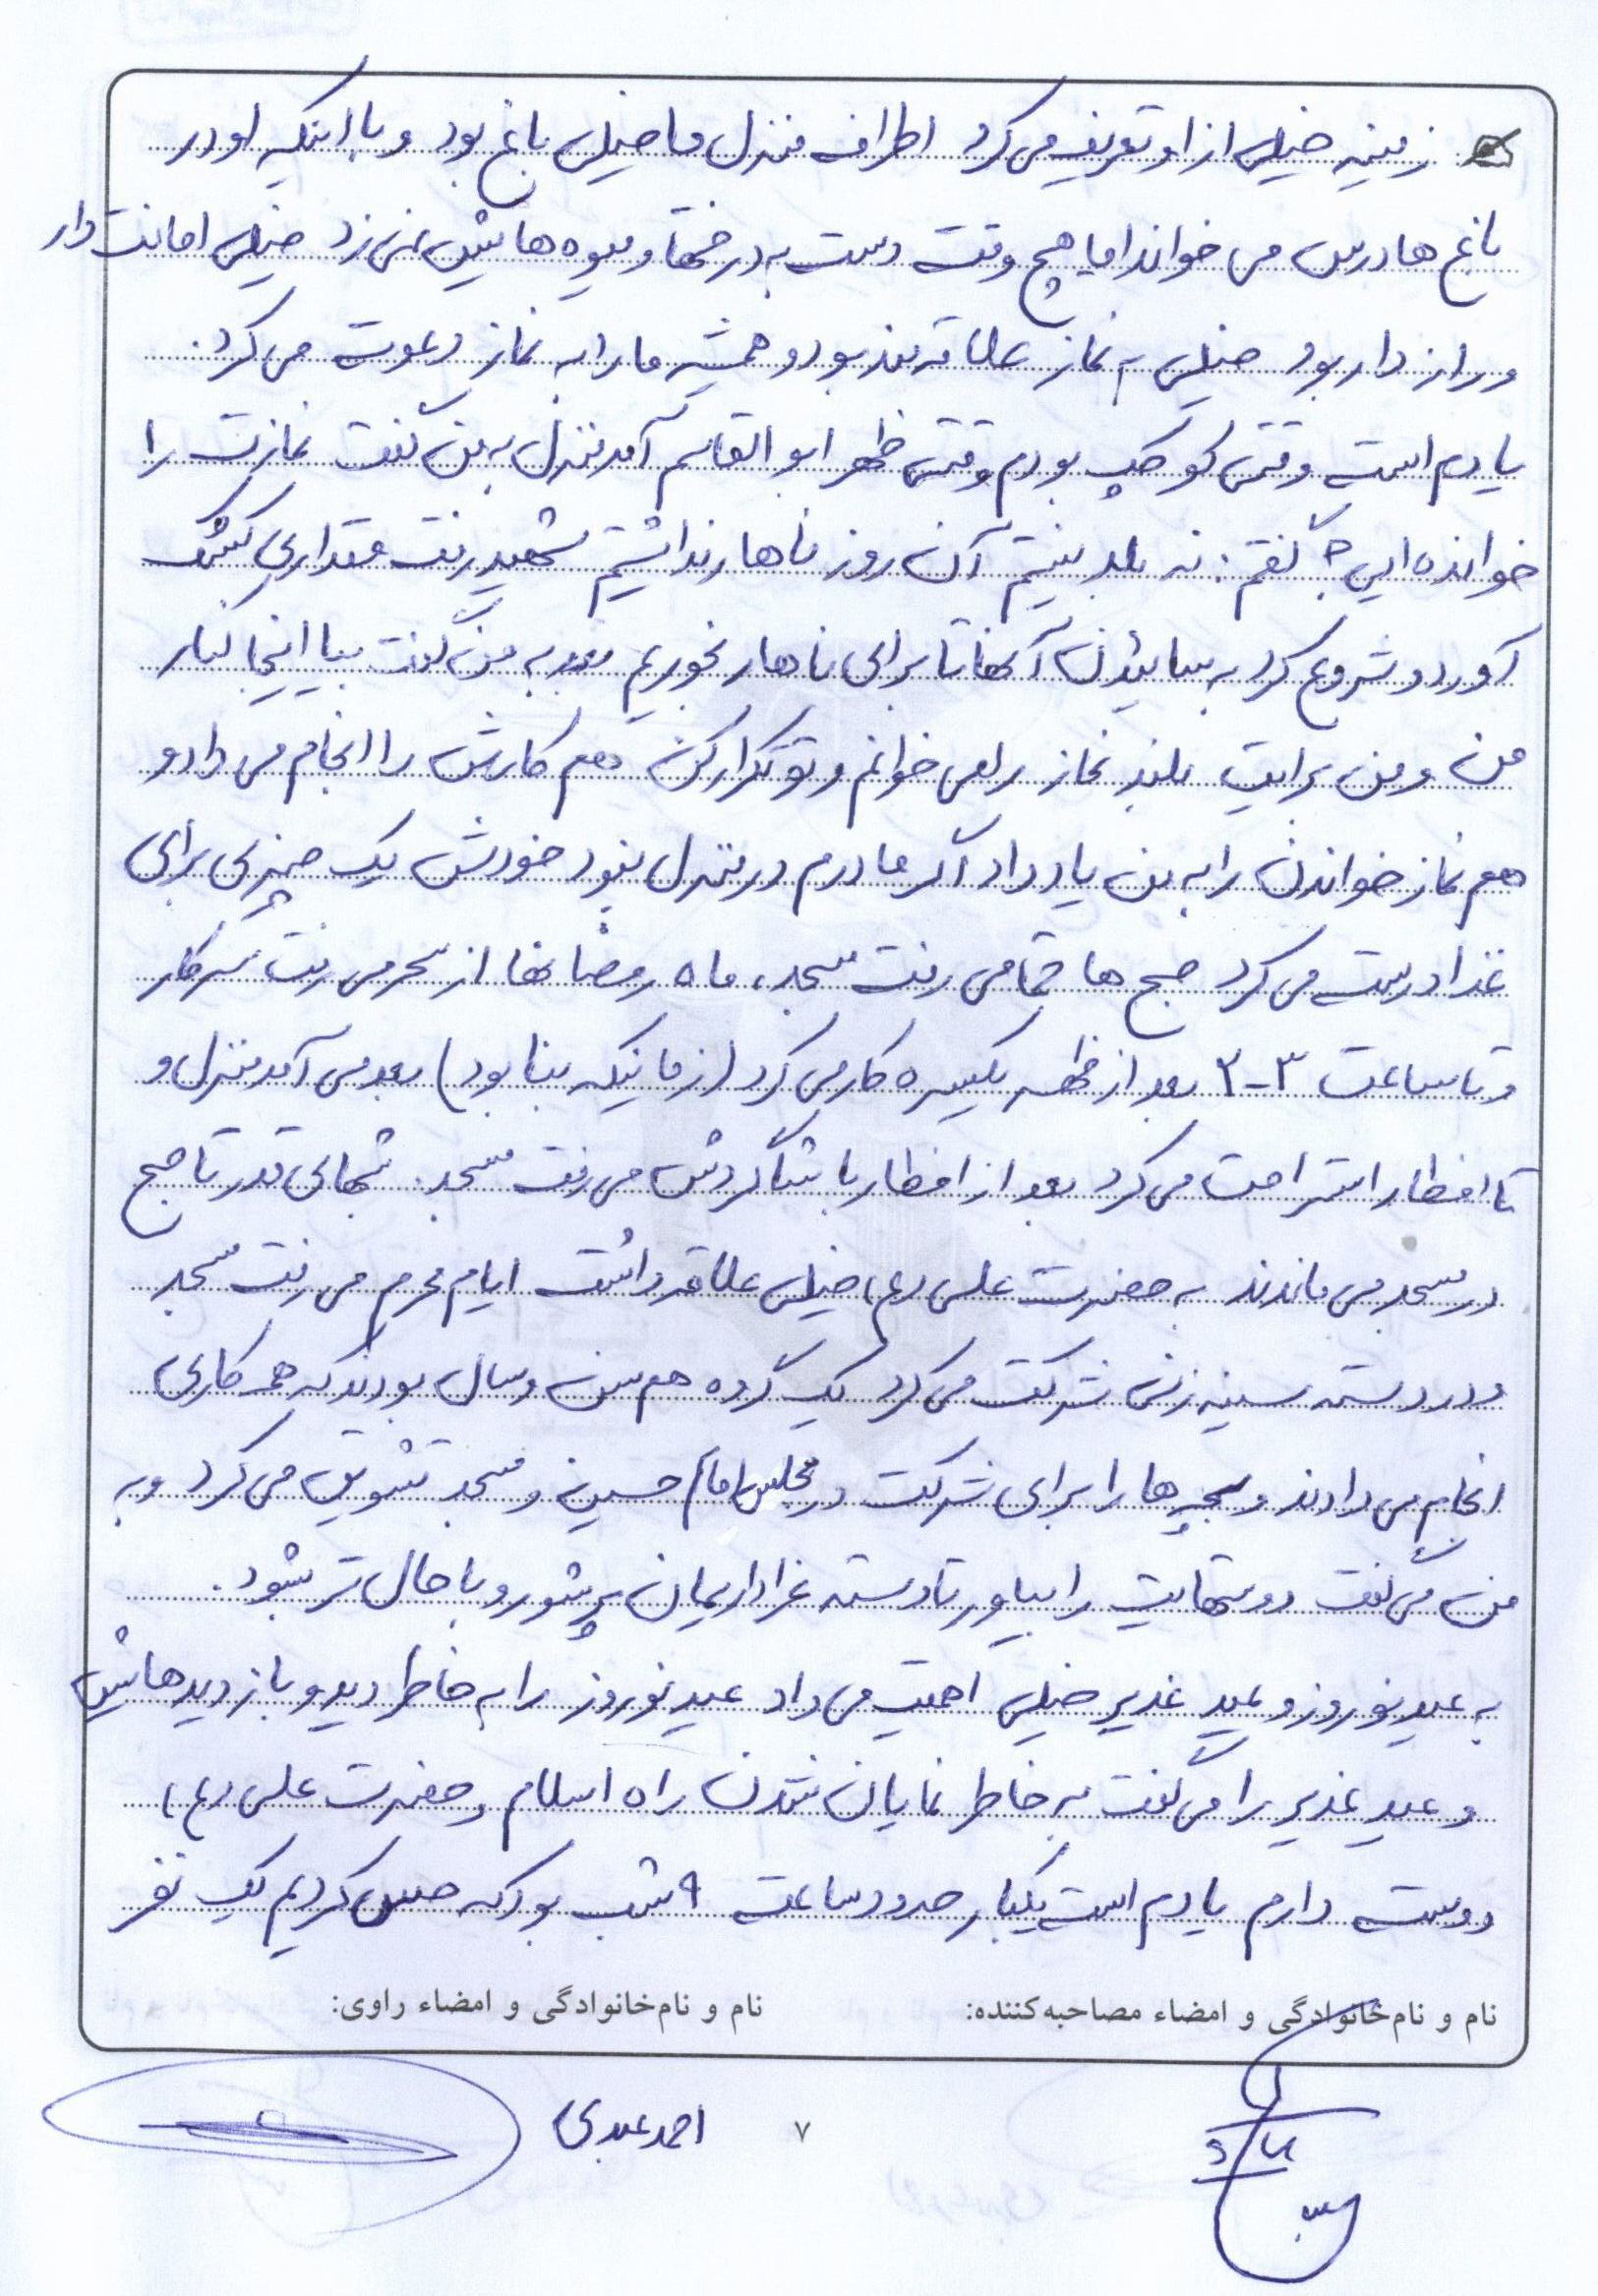 زمینه خیلی از او تعریف می کرد اطراف منزل ما خیلی باغ بود و با اینکه او در
باغ ها درس می خواند اما هیچ وقت دست به درختها و میوه هایش نمی زد خیلی امانت دار
و راز دار بود خیلی به نماز علاقه مند بود و همیشه ما را به نماز دعوت می کرد.
یادم است وقتی کوچک بودم وقتی ظهر ابوالقاسم آمد منزل به من گفت نمازت را
خوانده ایی؟ گفتم: نه بلد نیستم آن روز ناهار نداشتیم شهید رفت مقداری کشک
آورد و شروع کرد به سائیدن آنها تا برای ناهار بخوریم بعد به من گفت بیا اینجا کنار
من و من برایت بلند نماز را می خوانم و تو تکرار کن هم کارش را انجام می داد و
هم نماز خواندن را به من یاد داد اگر مادرم در منزل نبود خودش یک چیزی برای
غذا درست می کرد صبح ها حتما می رفت مسجد، ماه رمضانها از سحر می رفت سر کار
و تا ساعت ۳-۲ بعد از ظهر یکسره کار می کرد (زمانیکه بنا بود) بعد می آمد منزل و
تا افطار استراحت می کرد بعد از افطار با شاگردش می رفت مسجد. شبهای قدر تا صبح
در مسجد می ماندند به حضرت علی (ع) خیلی علاقه داشت ایام محرم می رفت مسجد
و در دسته سینه زنی شرکت می کرد یک گروه هم سن و سال بودند که همه کاری
انجام می دادند و بچه ها را برای شرکت در مجلس امام حسین و مسجد تشویق می کرد و به
من می گفت دوستهایت را بیاور تا دسته عزاداریمان پرشور و با حال تر بشود.
به عید نوروز و عید غدیر خیلی اهمیت می داد عید نوروز را به خاطر دید و بازدیدهایش
و عید غدیر را می گفت به خاطر نمایان شدن راه اسلام و حضرت علی (ع)
دوست دارم یادم است یکبار حدود ساعت ۹ شب بود که حس کردیم یک نفر
نام و نام خانوادگی و امضاء مصاحبه کننده: نام و نام خانوادگی و امضاء راوی:
۷ احمد عبدی